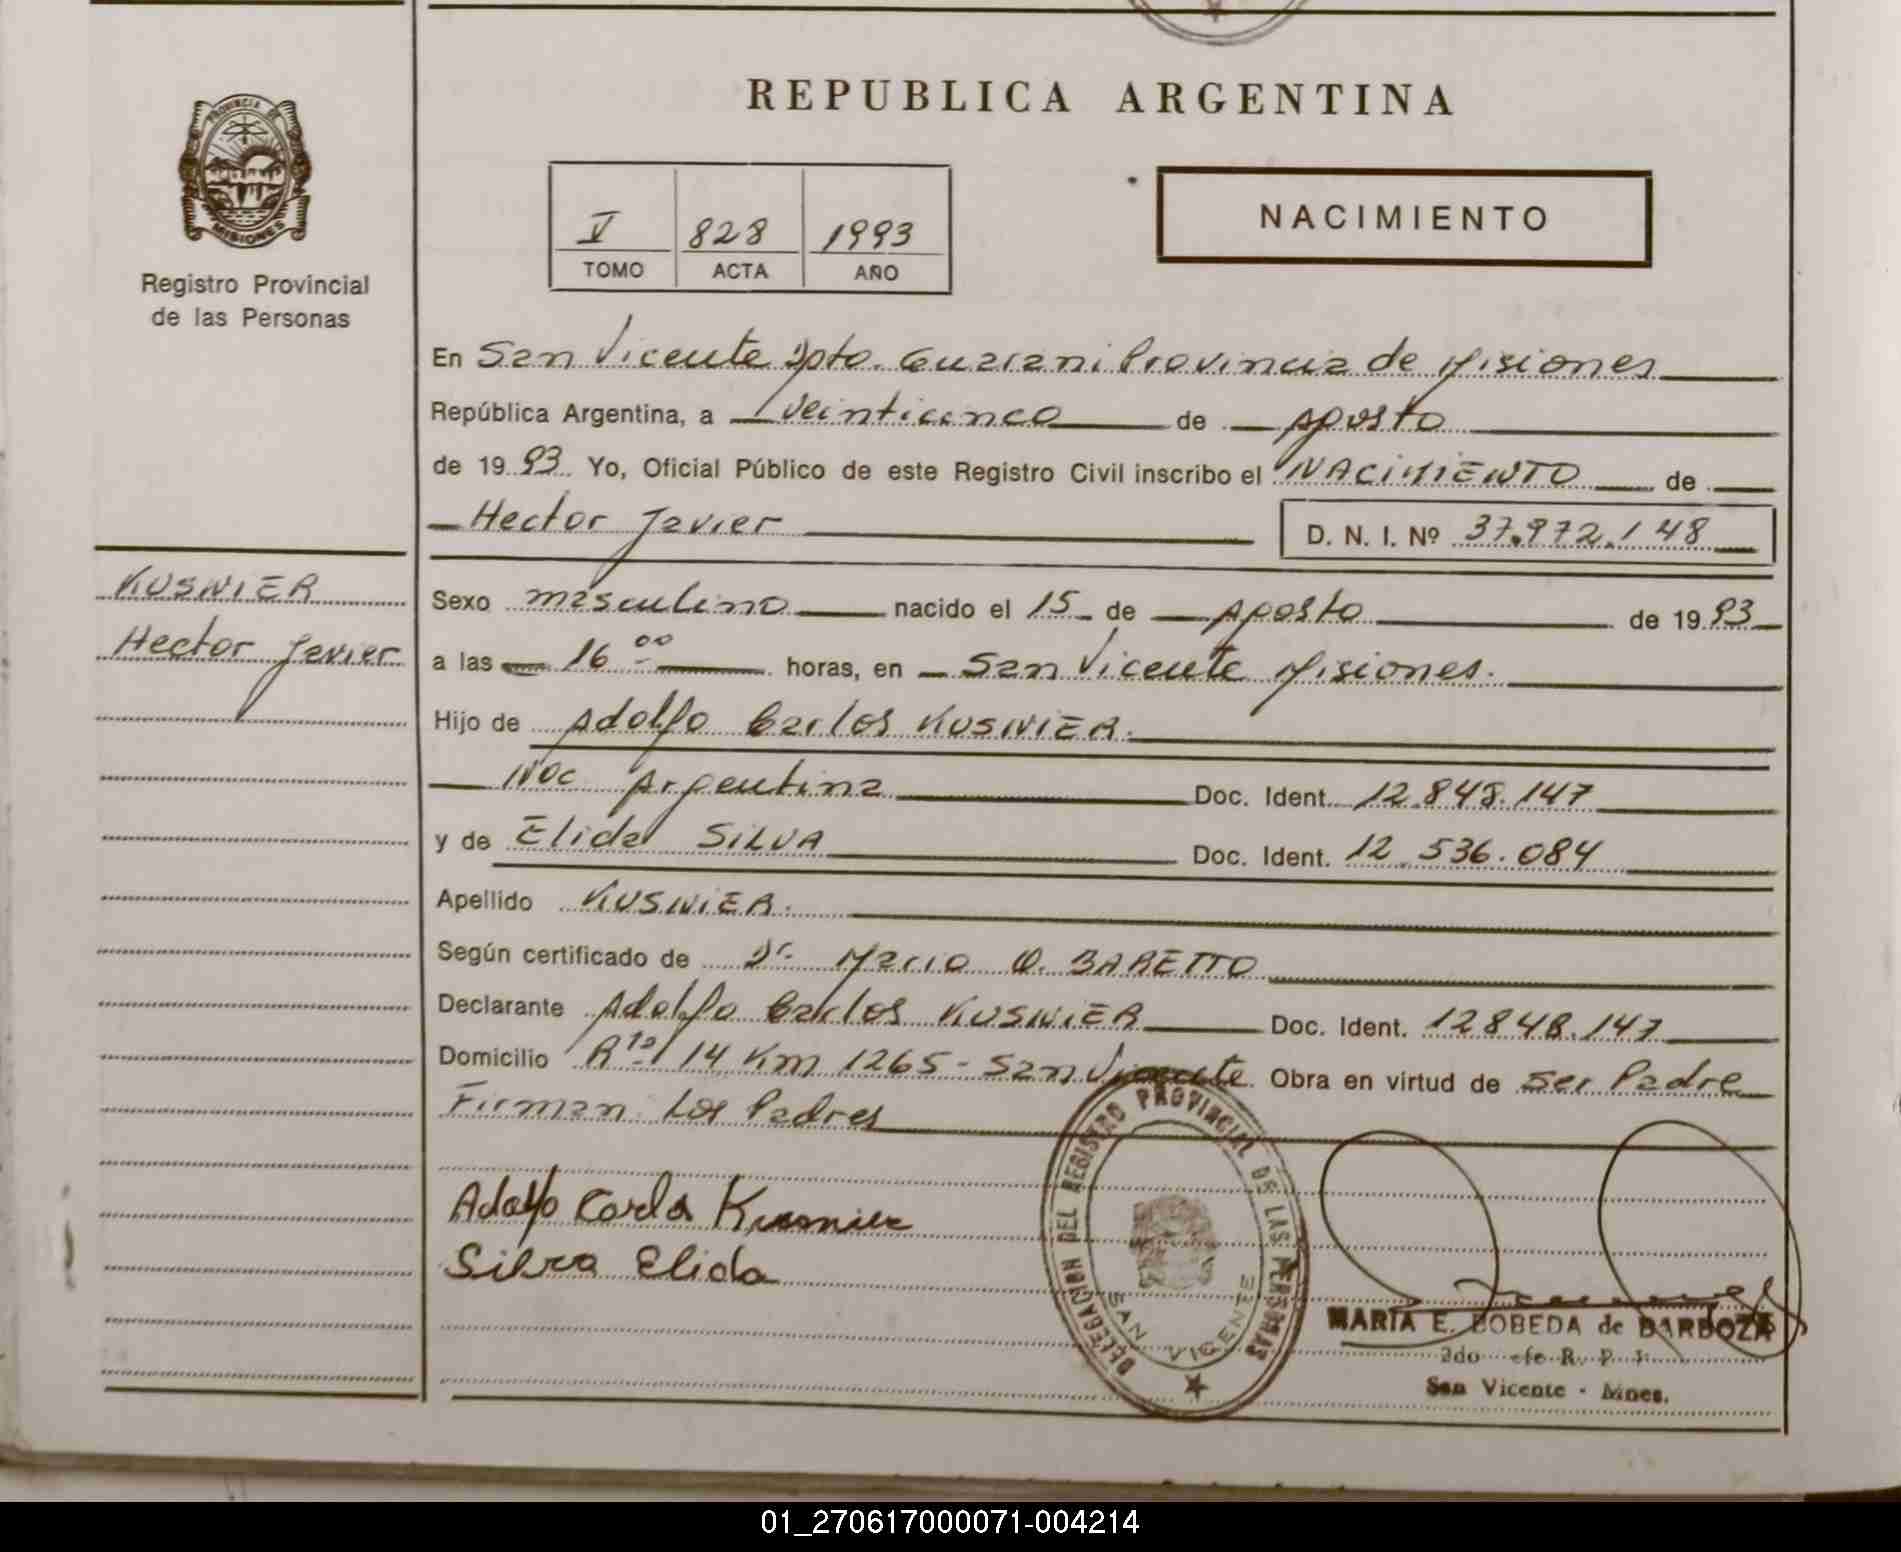 REPUBLICA ARGENTINA
PROVINCIA DE
MISIONES
Registro Provincial
de las Personas
V 828 1993
TOMO ACTA AÑO
NACIMIENTO
En San Vicente Dpto. Guarani Provincia de Misiones
República Argentina, a veinticinco de agosto
de 1993 Yo, Oficial Público de este Registro Civil inscribo el NACIMIENTO de
Hector Javier D. N. I. Nº 37.972.148
KUSNIER
Hector Javier
Sexo masculino nacido el 15 de agosto de 1993
a las 16 00 horas, en San Vicente Misiones.
Hijo de Adolfo Carlos KUSNIER.
Nac Argentina Doc. Ident. 12.848.147
y de Elida SILVA Doc. Ident. 12.536.084
Apellido KUSNIER.
Según certificado de Dr. Mario O. BARETTO
Declarante Adolfo Carlos KUSNIER Doc. Ident. 12848.147
Domicilio Rta 14 Km 1265 - San Vicente Obra en virtud de ser Padre
Firman Los Padres
Adolfo Carlos Kusnier
Silva Elida
DELEGACION DEL REGISTRO PROVINCIAL DE LAS PERSONAS
SAN VICENTE
MARIA E. BOBEDA de BARBOZA
2do Jefe R. P.
San Vicente - Mnes.
01_270617000071-004214